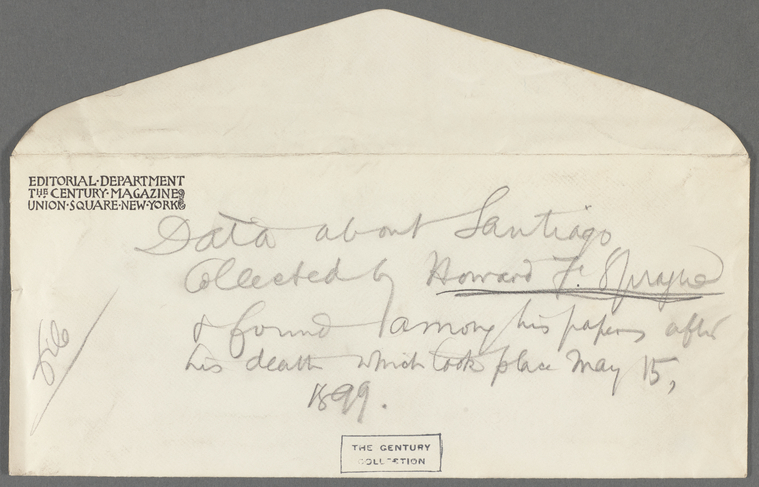 EDITORIAL·DEPARTMENT
THE CENTURY·MAGAZINE
UNION·SQUARE·NEW·YORK
Data about Santiago
Collected by Howard F. Sprague
& found among his papers after
his death which took place May 15,
1899.
file
THE CENTURY
COLLECTION